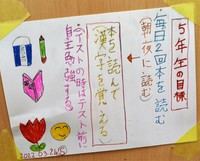 5年生の目標
・毎日2回本を読む
(朝、夜に読む)
本を読んで
漢字を覚える
・テストの時はテスト前に
自主勉強する。
2022.03.26